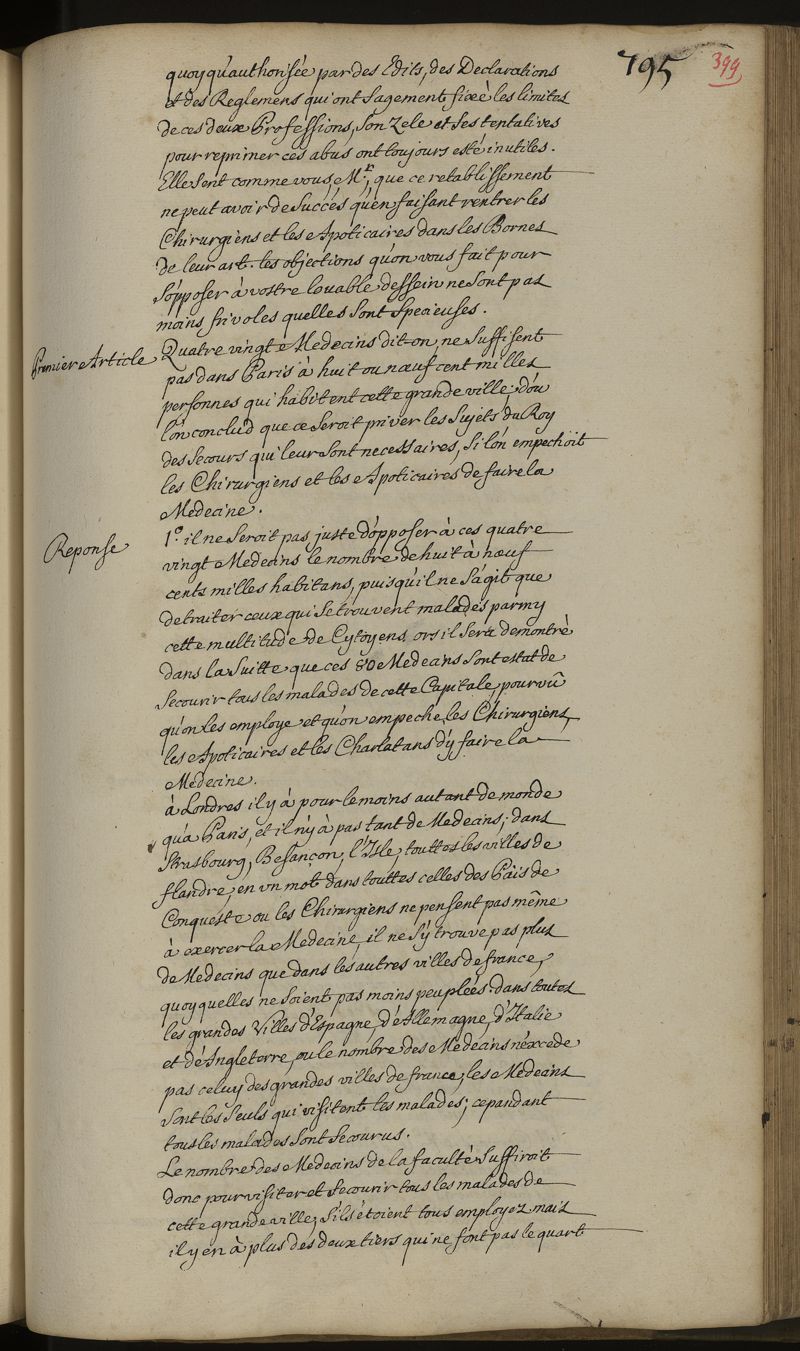 795
399
quoyqu'authorisée par des Edits, des Declarations
et des Reglemens qui ont sagement fixé les limites
de ces deux Professions, son Zele et ses tentatives
pour reprimer ces abus ont toujours esté inutiles.
Elle sent comme vous, Mr, que ce retablissement
ne peut avoir de Succès qu'en faisant rentrer les
Chirurgiens et les Apoticaires dans les Bornes
de leur art. les objections qu'on vous fait pour
s'opposer à vostre louable dessein ne sont pas
moins frivoles quelles sont specieuses.
Premier Article
Quatre vingt Medecins dit on, ne suffisent
pas dans Paris à huit ou nœuf cent milles
personnes qui habitent cette grande ville; d'où
l'on conclud que ce seroit priver les Sujets du Roy
des secours qui leur sont necessaires, si l'on empechoit
les Chirurgiens et les Apoticaires de faire la
Medecine.
Reponse
1.° il ne seroit pas juste d'opposer à ces quatre
vingt Medecins le nombre de huit à nœuf
cents milles habitans, puisqu'il ne s'agit que
de traiter ceux qui se trouvent malades parmy
cette multitude de Cytoyens, or il sera demontré
dans la Suitte que ces 80 Medecins sont estat de
secourir tous les malades de cette Capitale, pourvû
qu'on les employe et qu'on empeche les Chirurgiens,
les Apoticaires et les Charlatans d'y faire la
Medecine.
à Londres il y à pour le moins autant de monde
qu'a Paris, et il n'y à pas tant de Medecins; dans
Strasbourg, Besançon, l'Isle, touttes les villes de
flandre, en un mot dans touttes celles des Païs de
Conqueste ou les Chirurgiens ne pensent pas même
à exercer la Medecine, il ne s'y trouve pas plus
de Medecins que dans les autres villes de france,
quoyquelles ne soient pas moins peuplées. dans toutes
les grandes Villes d'Espagne, d'Allemagne, d'Italie
et d'Angleterre, ou le nombre des Medecins n'excede
pas celuy des grandes villes de france, les Medecins
sont les seuls qui visitent les malades; cepandant
tous les malades sont secourus.
Le nombre des Medecins de la faculté suffiroit
donc pour visiter et secourir tous les malades de
cette grande ville, s'ils étoient tous employez mais
il y en à plus des deux tiers qui ne font pas le quart